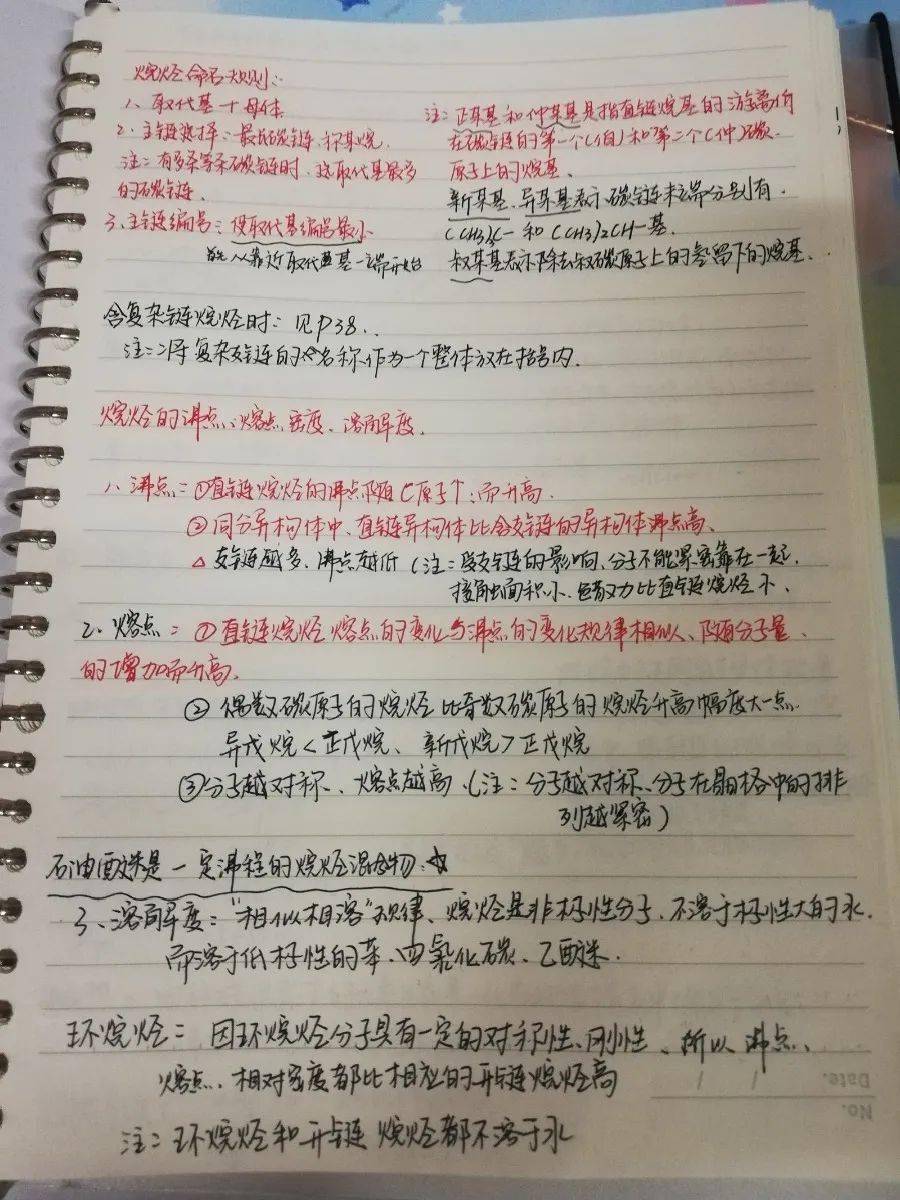 烷烃命名规则：
1、取代基+母体
2、主链选择：最长碳链，称某烷.
注：有多条等长碳链时，选取代基最多
的碳链.
3、主链编号：使取代基编号最小
从靠近取代基一端开始
注：正某基和仲某基是指直链烷基的游离价
在碳链的第一个C(伯)和第二个C(仲)碳
原子上的烷基.
新某基、异某基表示碳链末端分别有.
(CH3)3C- 和 (CH3)2CH- 基.
叔某基表示除去叔碳原子上的氢留下的烷基.
含复杂链烷烃时：见P38..
注：将复杂支链的名称作为一个整体放在括号内.
烷烃的沸点、熔点、密度、溶解度.
1、沸点：①直链烷烃的沸点随C原子个↑而升高.
②同分异构体中、直链异构体比含支链的异构体沸点高、
△支链越多、沸点越低（注：受支链的影响、分子不能紧密靠在一起，
接触面积小、色散力比直链烷烃小、
2、熔点：①直链烷烃熔点的变化与沸点的变化规律相似、随分子量
的增加而升高.
②偶数碳原子的烷烃比奇数碳原子的烷烃升高幅度大一点.
异戊烷<正戊烷、新戊烷>正戊烷
③分子越对称、熔点越高.（注：分子越对称、分子在晶格中的排
列越紧密）
石油醚是一定沸程的烷烃混合物.☆
3、溶解度："相似相溶"规律、烷烃是非极性分子、不溶于极性大的水.
而溶于低极性的苯、四氯化碳、乙醚.
环烷烃：因环烷烃分子具有一定的对称性、刚性、所以沸点、
熔点、相对密度都比相应的开链烷烃高
注：环烷烃和开链烷烃都不溶于水
Date.
No.